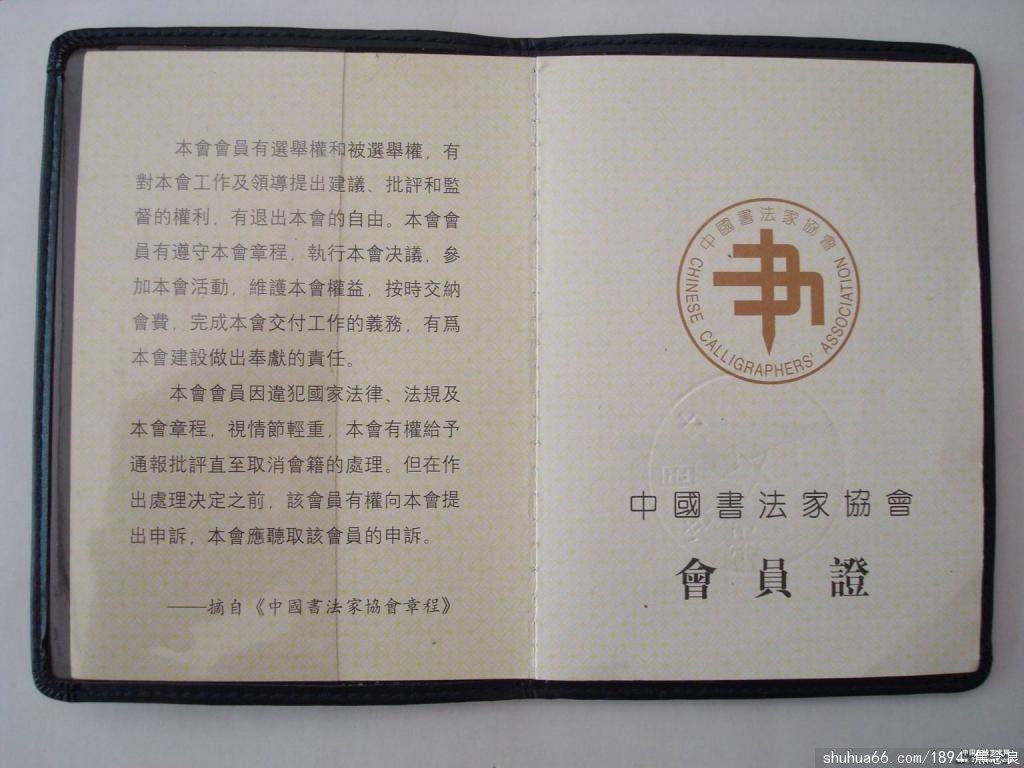 本會會員有選舉權和被選舉權，有
對本會工作及領導提出建議、批評和監
督的權利，有退出本會的自由。本會會
員有遵守本會章程，執行本會决議，參
加本會活動，維護本會權益，按時交納
會費，完成本會交付工作的義務，有爲
本會建設做出奉獻的責任。
本會會員因違犯國家法律、法規及
本會章程，視情節輕重，本會有權給予
通報批評直至取消會籍的處理。但在作
出處理决定之前，該會員有權向本會提
出申訴，本會應聽取該會員的申訴。
——摘自《中國書法家協會章程》
中國書法家協會
CHINESE CALLIGRAPHERS' ASSOCIATION
中國書法家協會
會員證
shuhua66.com/1894 焦念良